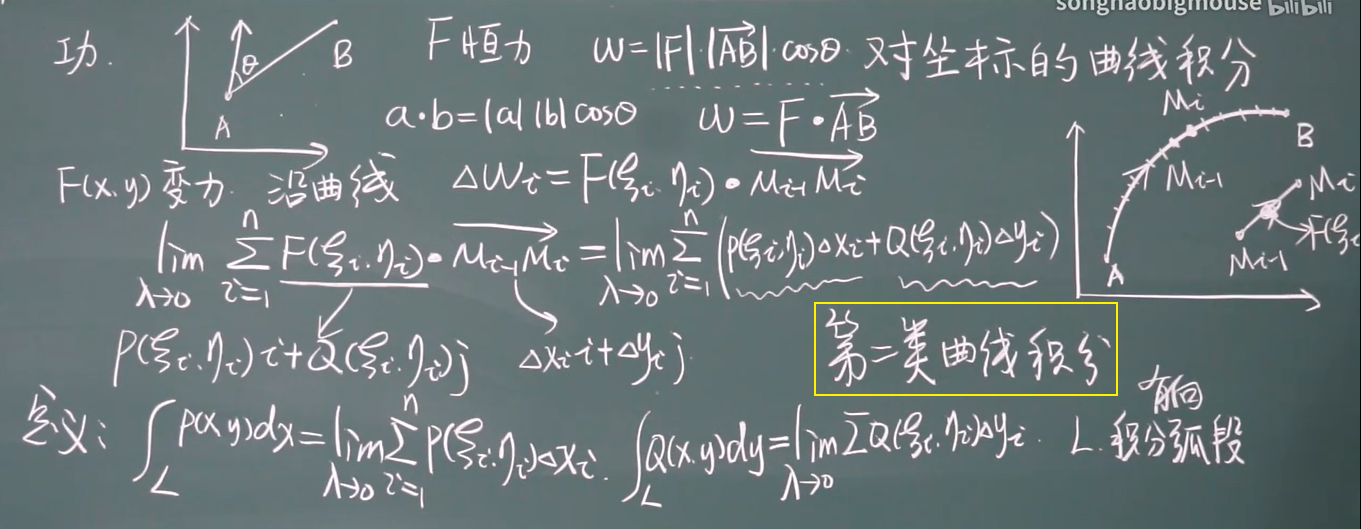 songhaobigmouse bilibili
功. θ A B F恒力 w=|F|·|\overrightarrow{AB}|·cosθ. 对坐标的曲线积分
a·b=|a||b|cosθ w=F·\overrightarrow{AB}
F(x.y)变力. 沿曲线 Δw_i=F(ξ_i.η_i)·\overrightarrow{M_{i-1}M_i}
M_i B M_{i-1} A M_i M_{i-1} F(ξ_i
\lim_{λ→0} \sum_{i=1}^{n} F(ξ_i.η_i)·\overrightarrow{M_{i-1}M_i}=\lim_{λ→0} \sum_{i=1}^{n} (P(ξ_i,η_i)Δx_i+Q(ξ_i,η_i)Δy_i)
P(ξ_i.η_i)i+Q(ξ_i.η_i)j Δx_i i+Δy_i j 第二类曲线积分
定义: \int_L P(x,y)dx=\lim_{λ→0} \sum_{i=1}^{n} P(ξ_i.η_i)Δx_i. \int_L Q(x.y)dy=\lim_{λ→0} ΣQ(ξ_i.η_i)Δy_i. L.有向积分弧段